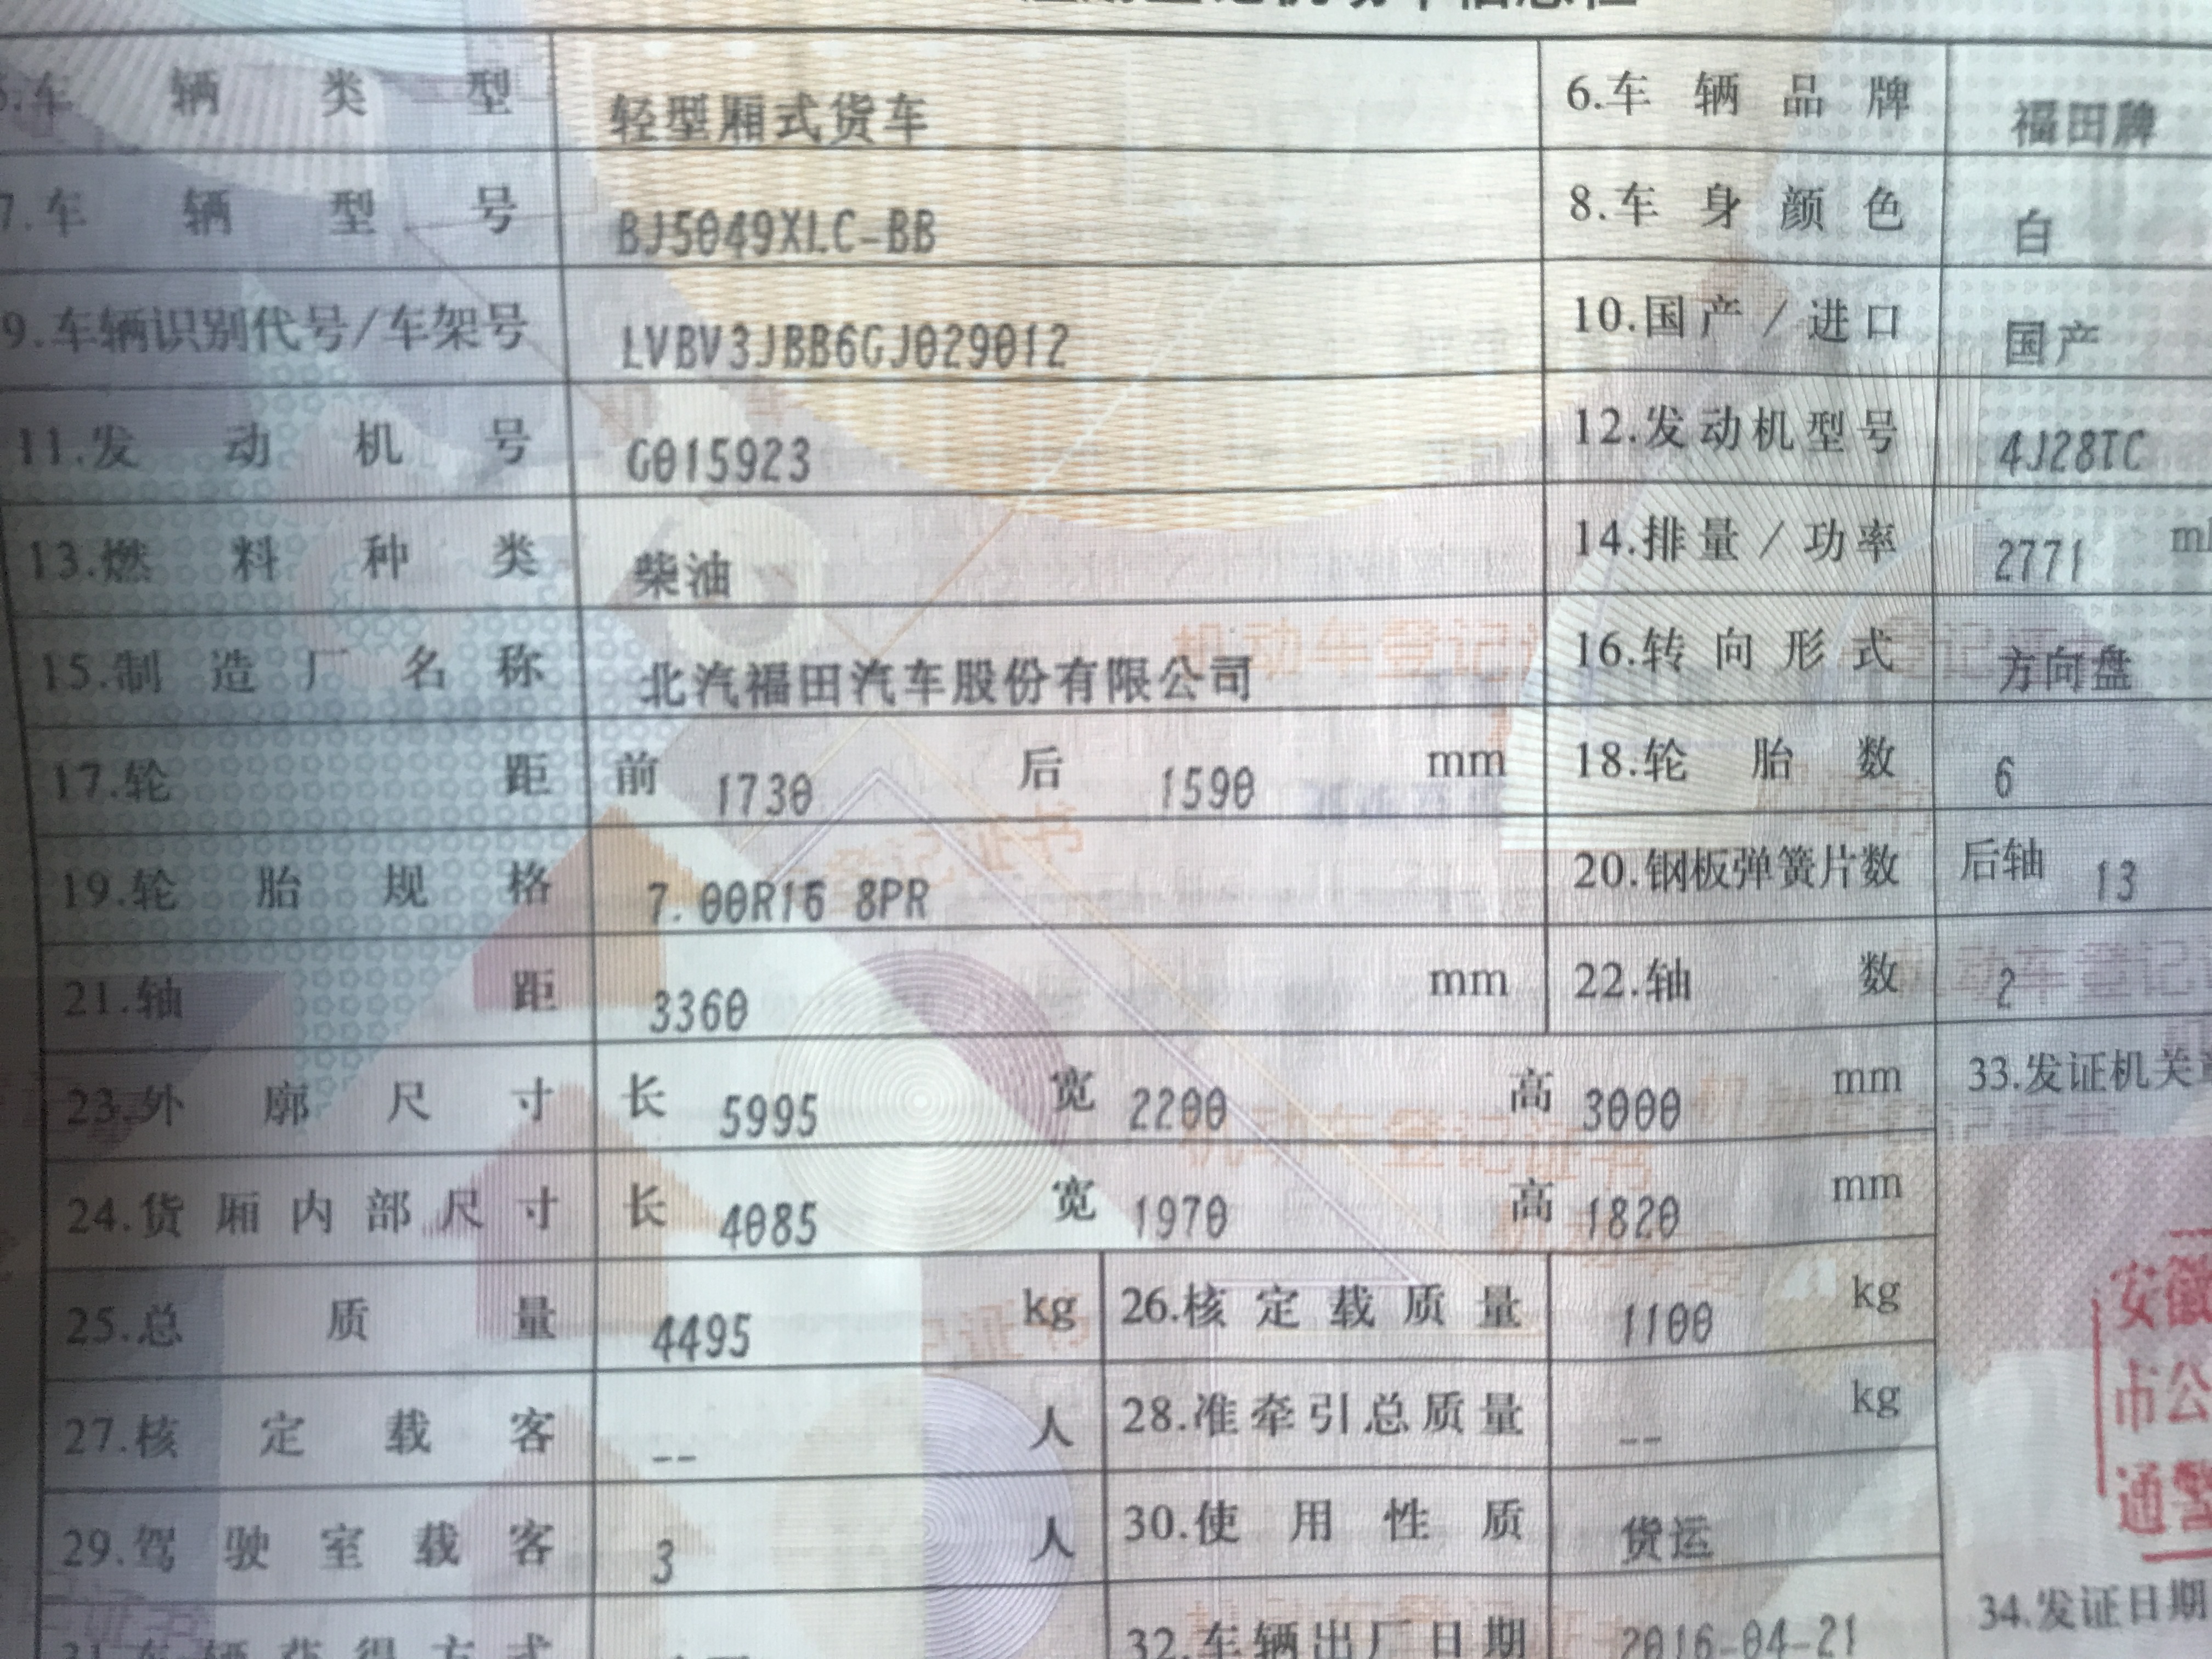 5.车辆类型 轻型厢式货车 6.车辆品牌 福田牌
7.车辆型号 BJ5049XLC-BB 8.车身颜色 白
9.车辆识别代号/车架号 LVBV3JBB6GJ029012 10.国产/进口 国产
11.发动机号 G015923 12.发动机型号 4J28TC
13.燃料种类 柴油 14.排量/功率 2771 ml
15.制造厂名称 北汽福田汽车股份有限公司 16.转向形式 方向盘
17.轮距 前 1730 后 1590 mm 18.轮胎数 6
19.轮胎规格 7.00R16 8PR 20.钢板弹簧片数 后轴 13
21.轴距 3360 mm 22.轴数 2
23.外廓尺寸 长 5995 宽 2200 高 3000 mm 33.发证机关章
24.货厢内部尺寸 长 4085 宽 1970 高 1820 mm
25.总质量 4495 kg 26.核定载质量 1100 kg
安徽
27.核定载客 -- 人 28.准牵引总质量 -- kg
市公
29.驾驶室载客 3 人 30.使用性质 货运
通警
31.车辆获得方式 32.车辆出厂日期 2016-04-21 34.发证日期